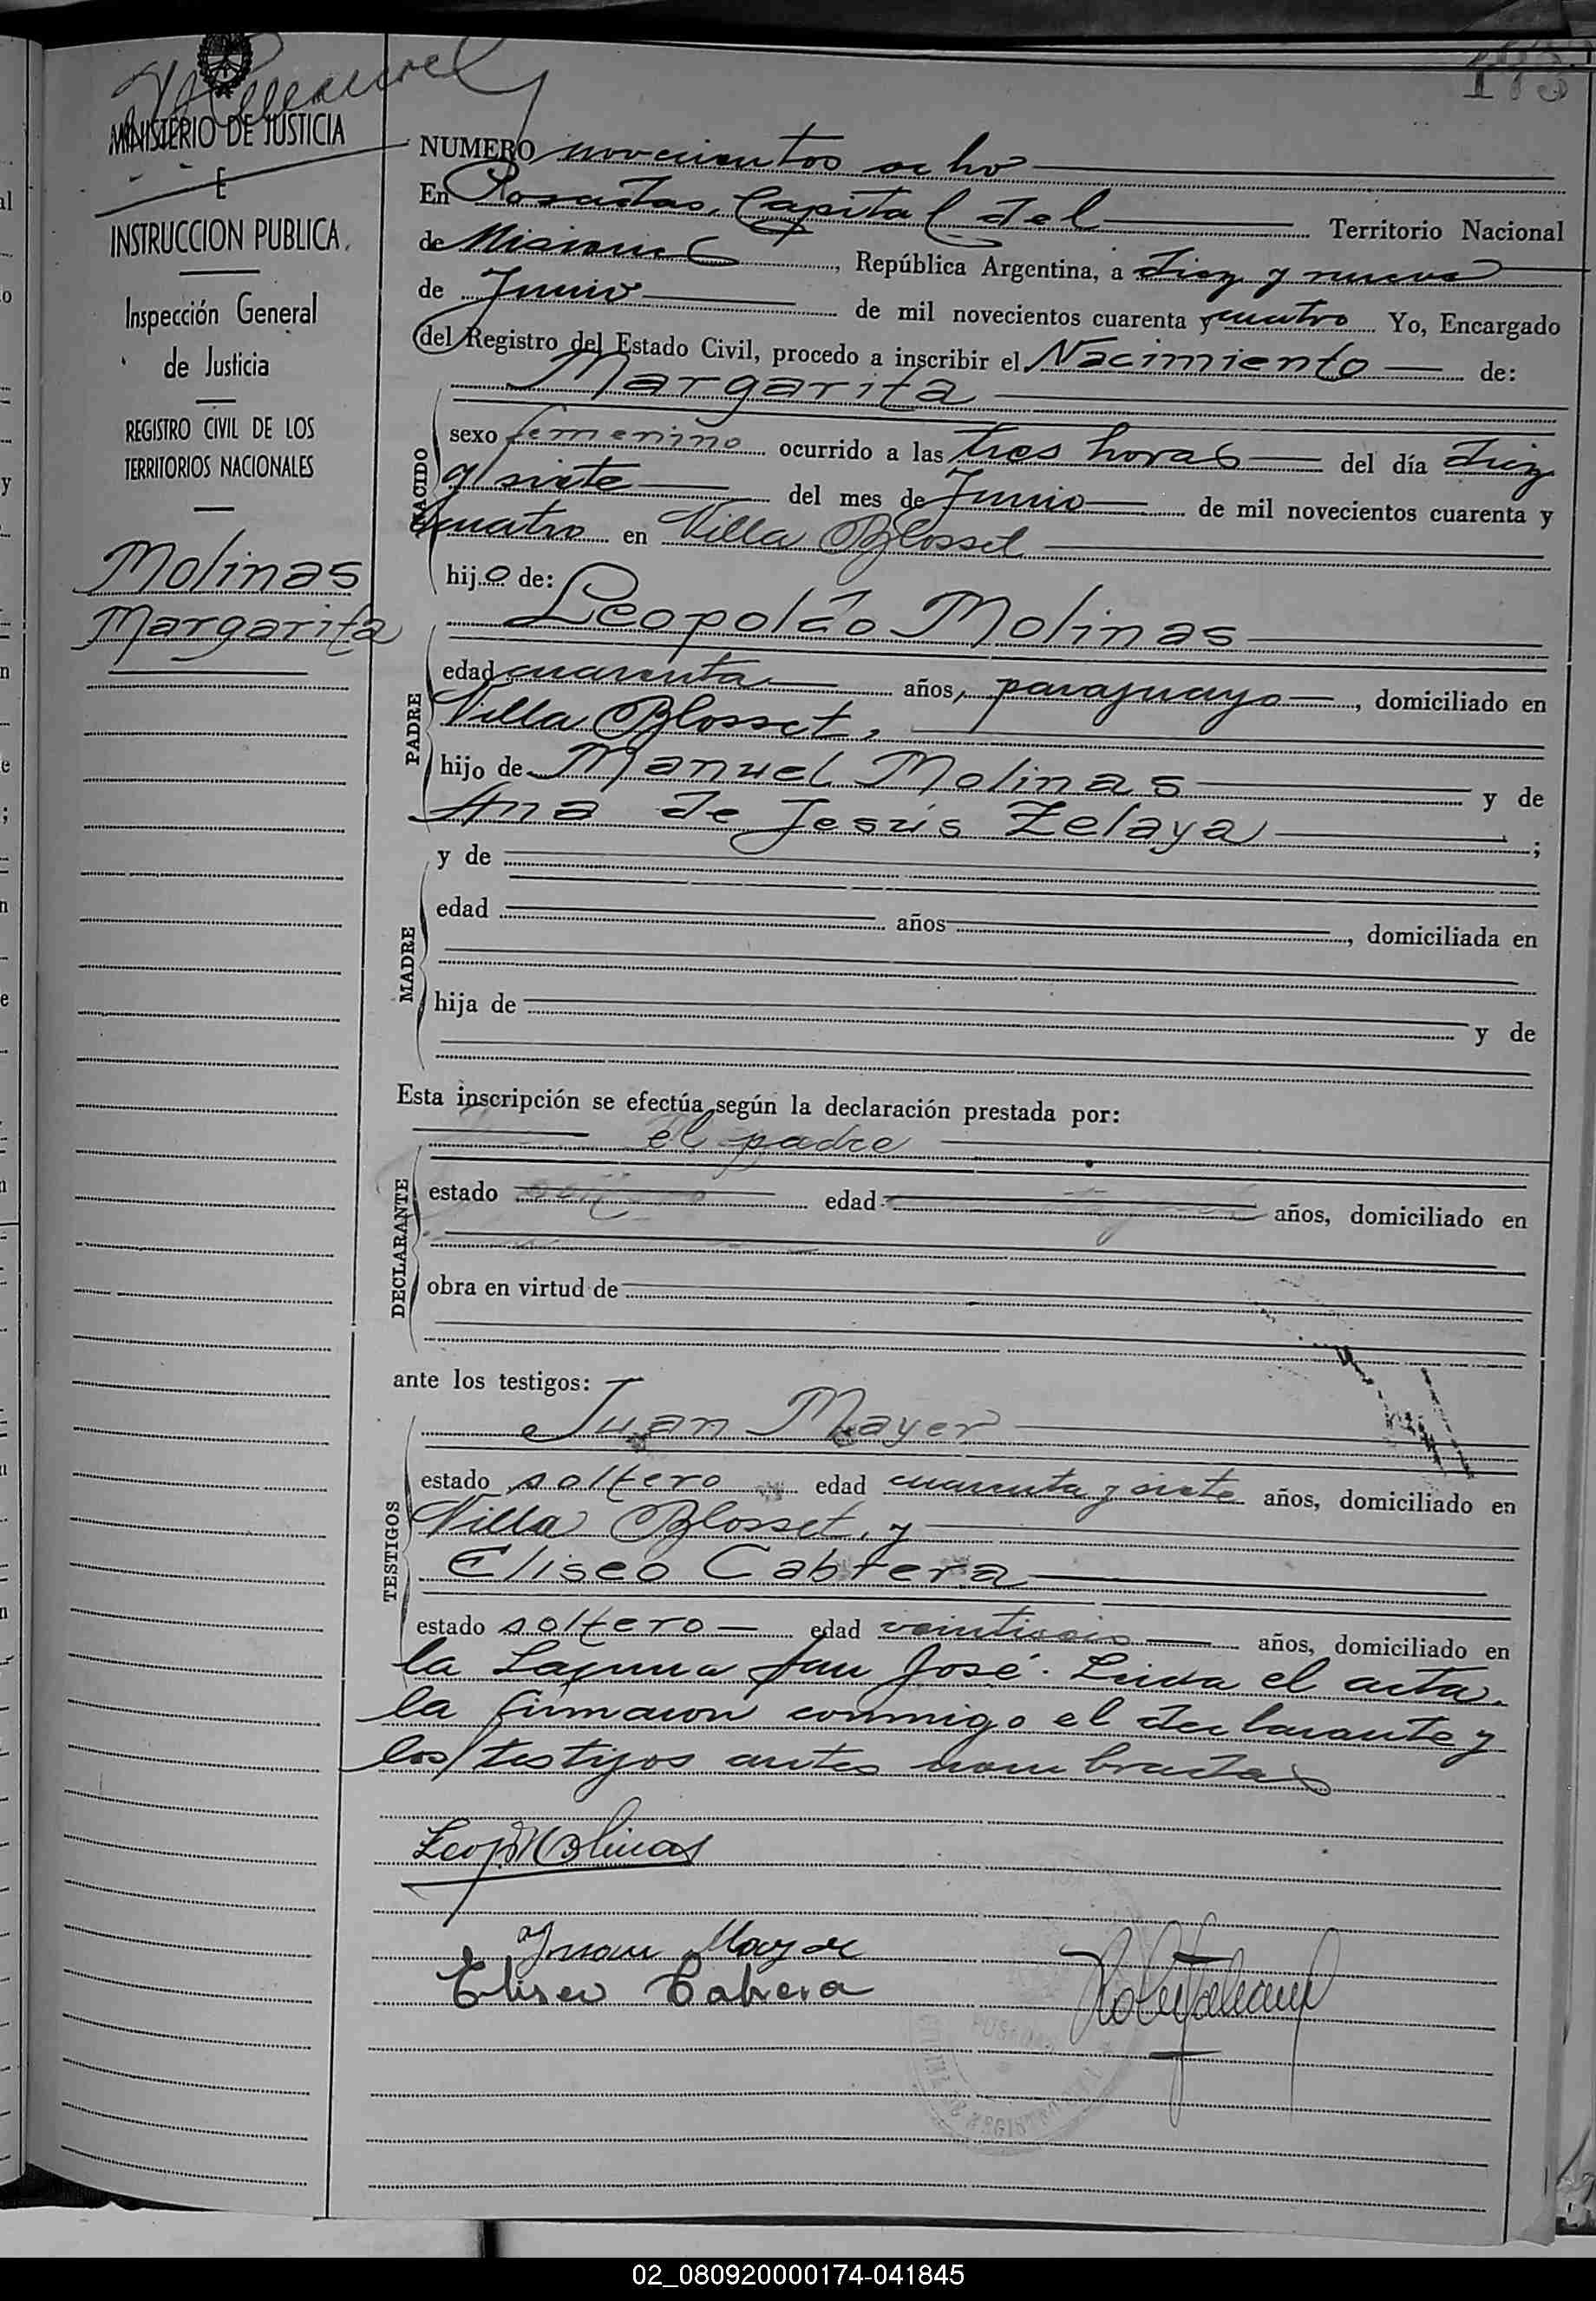 173
MINISTERIO DE JUSTICIA
E
INSTRUCCION PUBLICA
Inspección General
de Justicia
REGISTRO CIVIL DE LOS
TERRITORIOS NACIONALES
Molinas
Margarita
NUMERO novecientos ocho
En Posadas, Capital del Territorio Nacional
de Misiones, República Argentina, a diez y nueve
de Junio de mil novecientos cuarenta y cuatro Yo, Encargado
del Registro del Estado Civil, procedo a inscribir el Nacimiento de:
NACIDO
Margarita
sexo femenino ocurrido a las tres horas del día diez
y siete del mes de Junio de mil novecientos cuarenta y
cuatro en Villa Blosset
hijo de:
PADRE
Leopoldo Molinas
edad cuarenta años, paraguayo, domiciliado en
Villa Blosset,
hijo de Manuel Molinas y de
Ana de Jesús Zelaya;
MADRE
y de
edad años, domiciliada en
hija de y de
Esta inscripción se efectúa según la declaración prestada por:
DECLARANTE
el padre
estado edad años, domiciliado en
obra en virtud de
ante los testigos:
TESTIGOS
Juan Mayer
estado soltero edad cuarenta y siete años, domiciliado en
Villa Blosset, y
Eliseo Cabrera
estado soltero edad veintiseis años, domiciliado en
la Laguna San José. Leida el acta.
la firmaron conmigo el declarante y
los testigos antes nombrados
Leop Molinas
Juan Mayer
Eliseo Cabrera
02_080920000174-041845